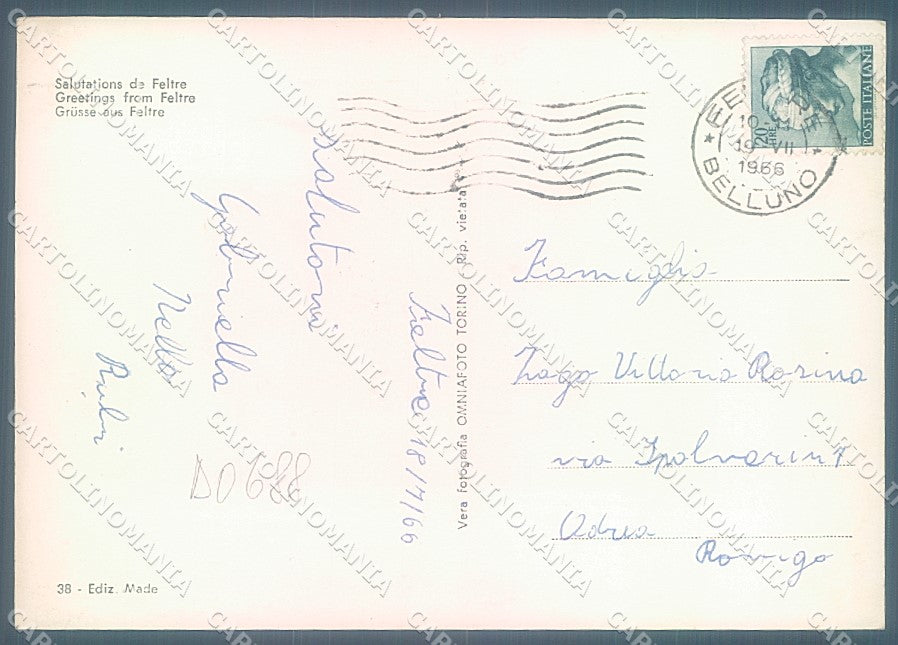 Salutations de Feltre
Greetings from Feltre
Grüsse aus Feltre
Feltre 18/7/66
Salutano
Gabriella
Nella
Rubi
DO688
38 - Ediz. Made
Vera Fotografia OMNIAFOTO TORINO - Rip. vietata
POSTE ITALIANE
LIRE 20
FELTRE
19 VII
1966
BELLUNO
Famiglia
Zago Vittorio Rosina
via Spolverin 7
Adria
Rovigo
CARTOLINOMANIA